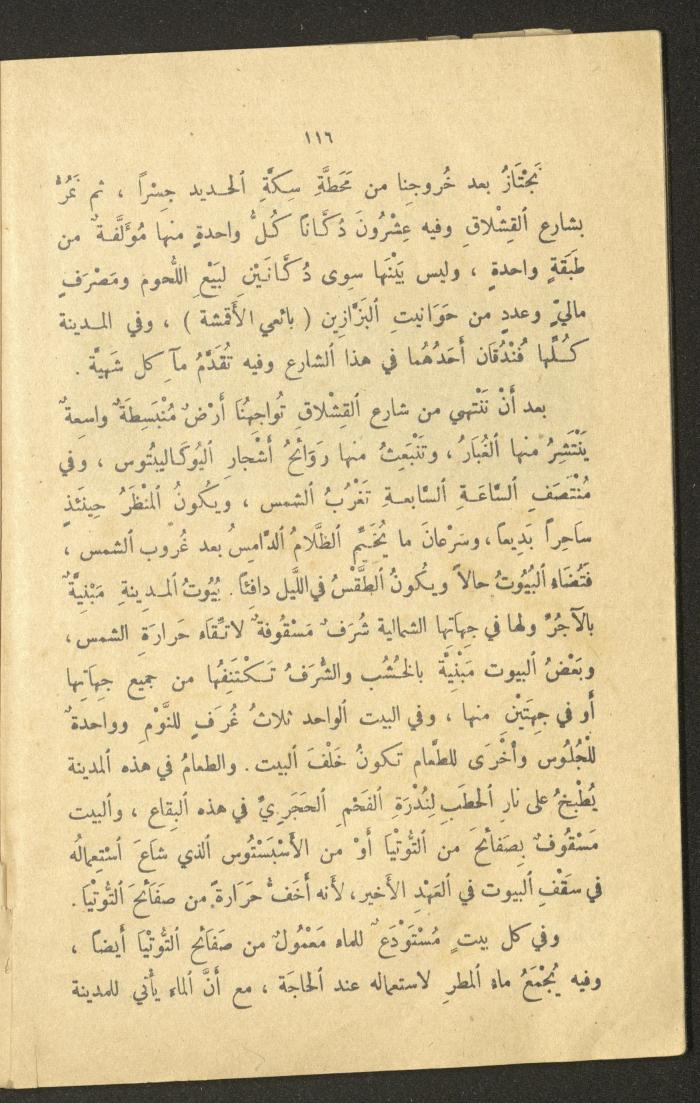 ١١٦
نَجْتَازُ بعد خُروجِنا من مَحَطَّةِ سِكَّةِ الحديد جِسْراً ، ثم نَمُرُّ
بشارع القِشْلاقِ وفيه عِشْرُونَ دُكَّاناً كُلُّ واحدةٍ منها مُؤَلَّفةٌ من
طَبَقَةٍ واحدةٍ ، وليس بَيْنَها سِوى دُكَّانَيْنِ لبَيْعِ اللُّحوم ومَصْرَفٍ
ماليٍّ وعددٍ من حَوَانيتِ البَزَّازِين ( بائعي الأقمشة ) ، وفي المدينة
كُلِّها فُنْدُقان أَحَدُهُما في هذا الشارع وفيه تُقَدَّمُ مآكل شَهِيَّة .
بعد أَنْ نَنْتهي من شارع القِشْلاقِ تُواجِهُنَا أَرْضٌ مُنْبَسِطَةٌ واسعةٌ
يَنْتَشِرُ منها الغُبَارُ ، وتَنْبَعِثُ منها رَوَائِحُ أَشْجارِ اليُوكَاليبْتُوس ، وفي
مُنْتَصَفِ السَّاعَةِ السَّابعةِ تَغْرُبُ الشمس ، ويكُونُ المَنْظَرُ حِينَئذٍ
سَاحِراً بَدِيعاً ، وسَرْعانَ ما يُخَيِّمُ الظَّلامُ الدَّامِسُ بعد غُروب الشمس ،
فَتُضَاء البُيُوتُ حالاً ويكُونُ الطَّقْسُ في اللَّيل دافِئاً . بُيُوتُ المدينةِ مَبْنِيَّةٌ
بالآجُرِّ ولها في جِهَاتِها الشمالية شُرَفٌ مَسْقُوفةٌ لاتِّقَاء حَرارَةِ الشمس ،
وبَعْضُ البيوت مَبْنِيَّة بالخُشُب والشُّرَفُ تَكْتَنِفُها من جميع جِهَاتِها
أَو في جِهَتَيْنِ منها ، وفي البيت الواحد ثلاثُ غُرَفٍ للنَّوْمِ وواحدةٌ
للْجُلُوس وأُخْرَى للطَّعام تكونُ خَلْفَ البيت . والطعامُ في هذه المدينة
يُطْبَخُ على نارِ الحطَبِ لِنُدْرَةِ الفَحْمِ الحَجَرِيِّ في هذه البِقاع ، والبيت
مَسْقُوفٌ بِصَفَائحَ من التُّوتْيَا أَوْ من الأَسْبَسْتُوس الذي شاعَ اسْتِعمالُه
في سَقْفِ البيوت في العَهْدِ الأخير ، لأنه أَخَفُّ حَرَارةً من صَفَائحَ التُّوتْيَا .
وفي كل بيتٍ مُسْتَوْدَعٌ للماء مَعْمُولٌ من صَفَائح التُّوتْيَا أيضاً ،
وفيه يُجْمَعُ ماء المطرِ لاستعماله عند الحاجَة ، مع أَنَّ الماء يأْتي للمدينة